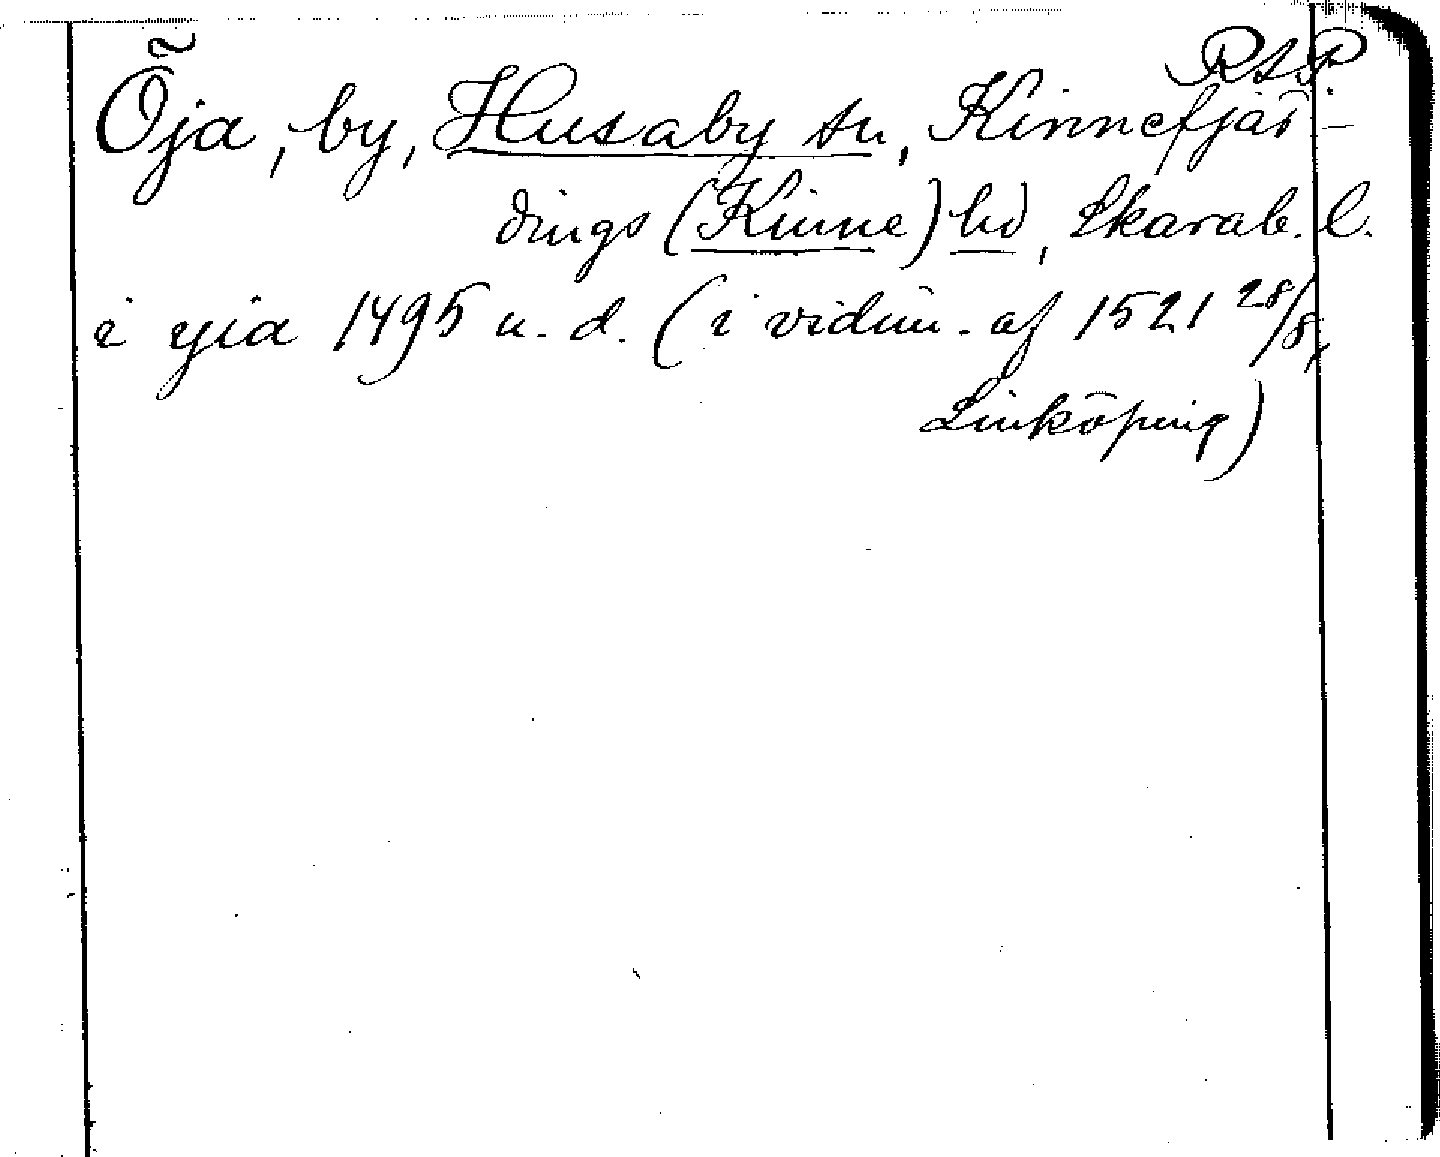 RAP.
Öja, by, Husaby sn, Kinnefjär-
dings (Kinne) hd, Skarab. l.
i yia 1495 u. d. (i vidim. af 1521 28/8,
Linköping)